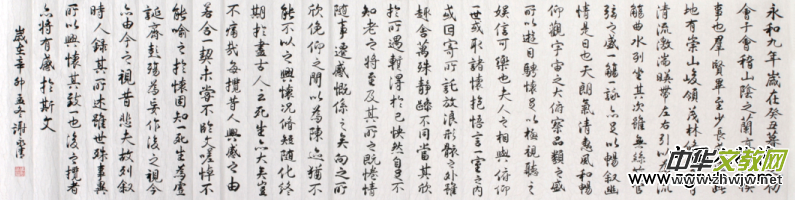 永和九年歲在癸丑暮春之初
會于會稽山陰之蘭亭修禊
事也群賢畢至少長咸集此
地有崇山峻領茂林修竹又有
清流激湍暎帶左右引以為流
觴曲水列坐其次雖無絲竹管
弦之盛一觴一詠亦足以暢叙幽
情是日也天朗氣清惠風和暢
仰觀宇宙之大俯察品類之盛
所以遊目騁懷足以極視聽之
娛信可樂也夫人之相與俯仰
一世或取諸懷抱悟言一室之內
或因寄所託放浪形骸之外雖
趣舍萬殊靜躁不同當其欣
於所遇暫得於己快然自足不
知老之將至及其所之既惓情
隨事遷感慨係之矣向之所
欣俛仰之間以為陳迹猶不
能不以之興懷況脩短隨化終
期於盡古人云死生亦大矣豈
不痛哉每攬昔人興感之由
若合一契未嘗不臨文嗟悼不
能喻之於懷固知一死生為虛
誕齊彭殤為妄作後之視今
亦由今之視昔悲夫故列叙
時人錄其所述雖世殊事異
所以興懷其致一也後之攬者
亦將有感於斯文
歲在辛卯孟冬謝
中华文教网
www.zhwjw.net